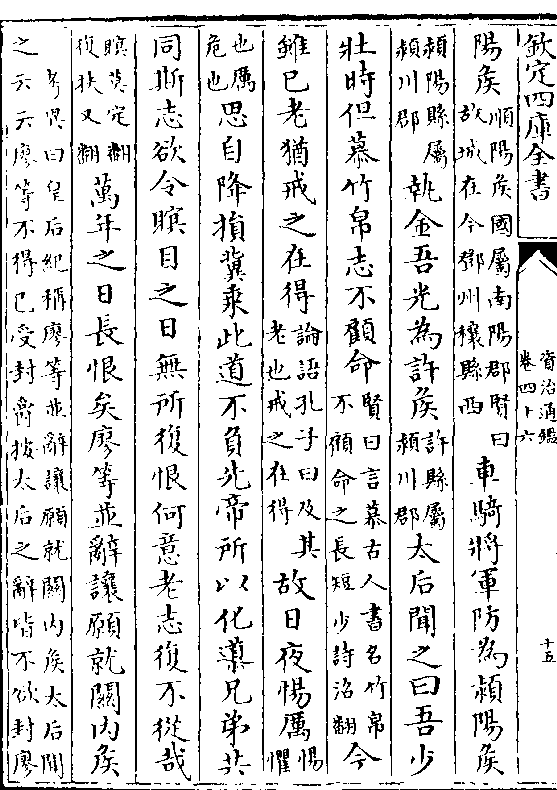 欽定四庫全書
資治通鑑
卷四十六
十五
陽侯順陽侯國屬南陽郡賢曰故城在今鄧州穰縣西車騎將軍防為潁陽侯
潁陽縣屬潁川郡執金吾光為許侯許縣屬潁川郡太后聞之曰吾少
壯時但慕竹帛志不顧命賢曰言慕古人書名竹帛不顧命之長短少詩沼翻今
雖已老猶戒之在得論語孔子曰及其老也戒之在得故日夜惕厲惕懼
也厲危也思自降損冀乘此道不負先帝所以化導兄弟共
同斯志欲令瞑目之日無所復恨何意老志復不從哉
瞑莫定翻復扶又翻萬年之日長恨矣廖等並辭讓願就關内侯
考異曰皇后紀稱廖等並辭讓願就關内侯太后聞之云云廖等不得已受封爵按太后之辭皆不欲封廖